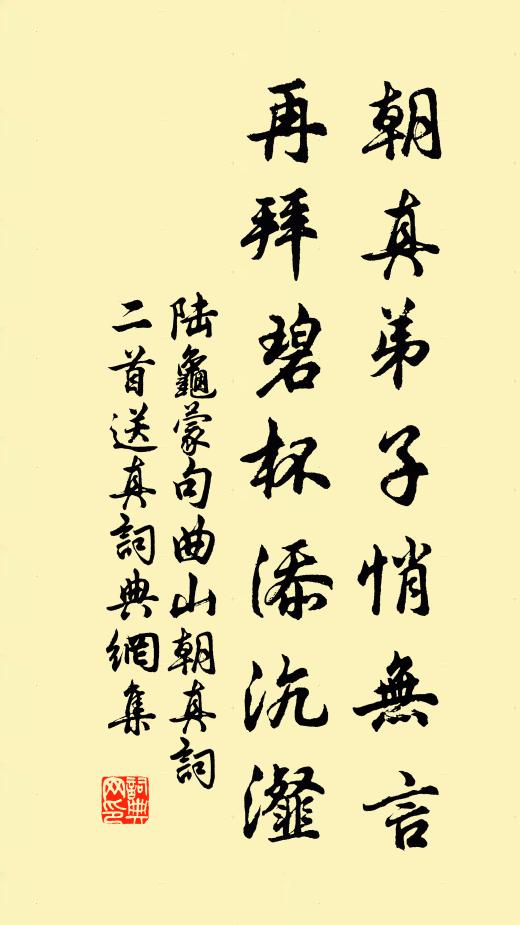 朝真弟子悄無言
再拜碧杯添沆瀣
陆龜蒙句曲山朝真詞
二首送真詞典網集
詞典
网印